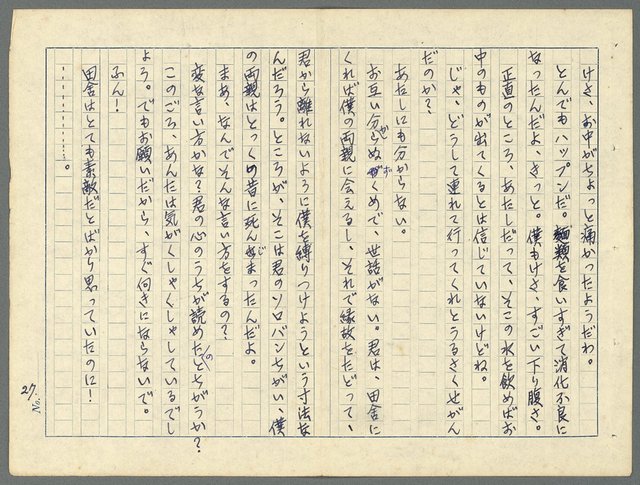 けさ、お中がちょっと痛かったようだわ。
とんでもハップンだ。麺類を食いすぎて消化不良に
なったんだよ、きっと。僕もけさ、すごい下り腹さ。
正直のところ、あたしだって、そこの水を飲めばお
中のものが出てくるとは信じていないけどね。
じゃ、どうして連れて行ってくれとうるさくせがん
だのか?
あたしにも分からない。
お互い分からぬずくめで、世話がない。君は、田舎に
くれば僕の両親に会えるし、それで縁故をたどって、
君から離れないように僕を縛りつけようという寸法な
んだろう。ところが、そこは君のソロバンちがい、僕
の両親はとっくの昔に死んじまったんだよ。
まあ、なんでそんな言い方をするの?
変な言い方かな?君の心のうちが読めたのとちがうか?
このごろ、あんたは気がくしゃくしゃしているでし
ょう。でもお願いだから、すぐ向きにならないで。
ふん!
田舎はとても素敵だとばかり思っていたのに!
…………。
27
No.